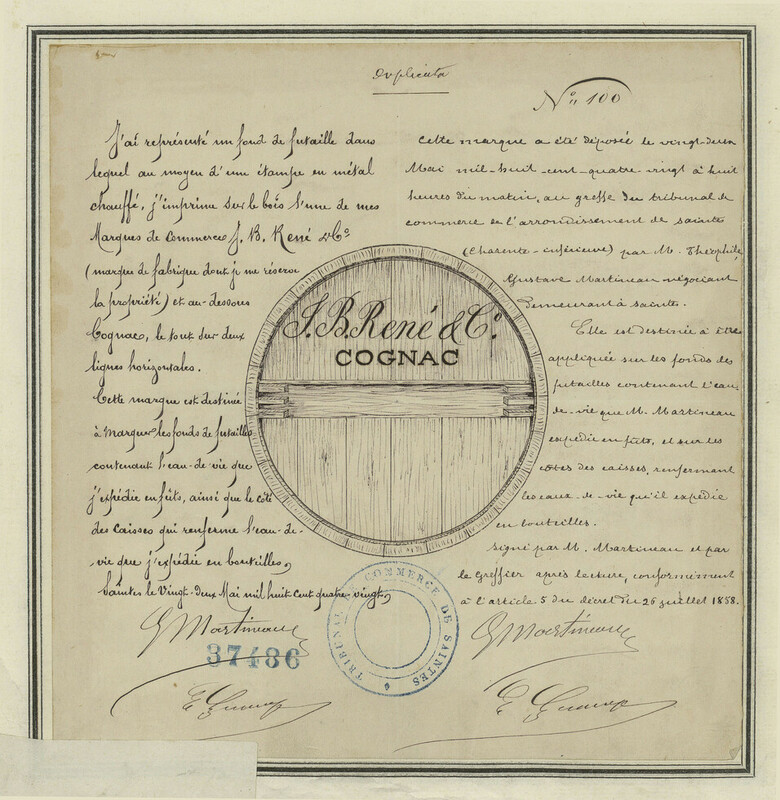 Duplicata
N° 100
J'ai représenté un fond de futaille dans
lequel au moyen d'une étampe en métal
chauffé, j'imprime sur le bois l'une de mes
Marques de Commerce J. B. René & Cº
(marque de fabrique dont je me réserve
la propriété) et au-dessous
Cognac, le tout sur deux
lignes horizontales.
Cette marque est destinée
à Marquer les fonds de futailles
contenant l'eau-de-vie que
j'expédie en fûts, ainsi que le côté
des Caisses qui renferme l'eau-de-
vie que j'expédie en bouteilles,
Saintes le Vingt-deux Mai mil huit cent quatre-vingt,
GMartineau
37486
Cette marque a été déposée le vingt-deux
Mai mil-huit-cent-quatre-vingt à huit
heures du matin, au greffe du tribunal de
commerce de l'arrondissement de Saintes
(Charente-inférieure) par M. Théophile
Gustave Martineau négociant
demeurant à Saintes.
Elle est destinée à être
appliquée sur les fonds des
futailles contenant l'eau-
de-vie que M. Martineau
expédie en fûts, et sur les
côtés des caisses, renfermant
les eaux-de-vie qu'il expédie
en bouteilles.
Signé par M. Martineau et par
le Greffier après lecture, conformément
à l'article 5 du décret du 26 juillet 1858.
GMartineau
J. B. René & Cº
COGNAC
TRIBUNAL DE COMMERCE DE SAINTES